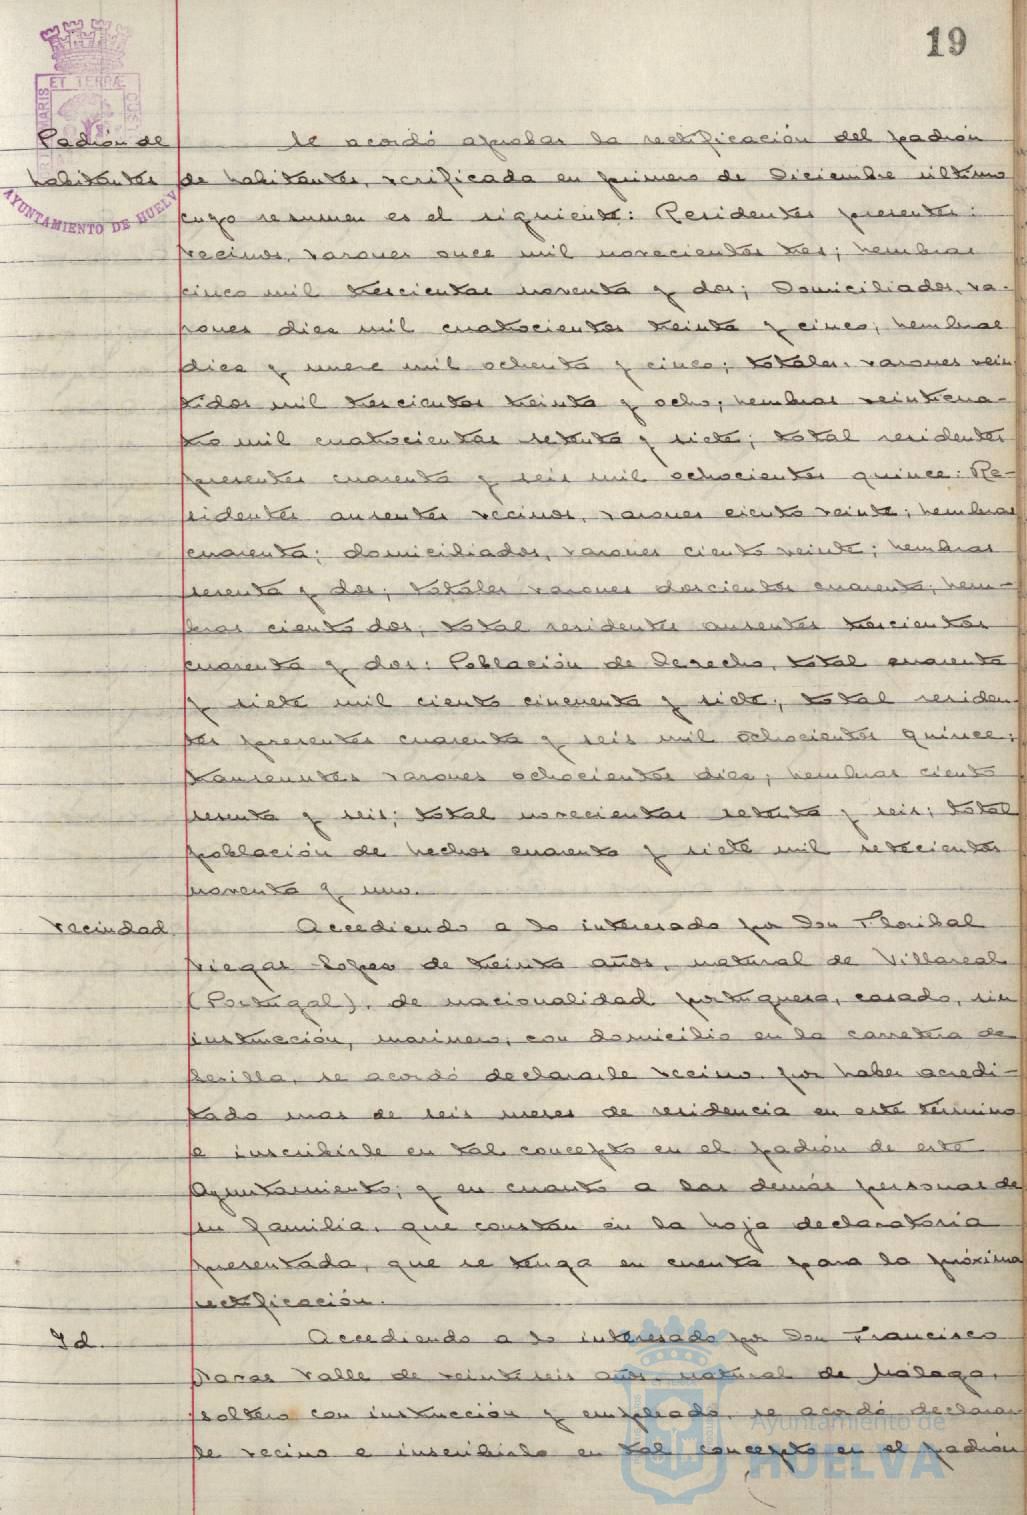 19
Padrón de
habitantes
Se acordó aprobar la rectificación del padrón
de habitantes, verificada en primero de Diciembre último
cuyo resumen es el siguiente: Residentes presentes:
vecinos, varones once mil novecientos tres; hembras
cinco mil trescientas noventa y dos; Domiciliados, va-
rones diez mil cuatrocientos treinta y cinco; hembras
diez y nueve mil ochenta y cinco; totales, varones vein
tidos mil trescientos treinta y ocho; hembras veinticua-
tro mil cuatrocientas setenta y siete; total residentes
presentes cuarenta y seis mil ochocientos quince: Re-
sidentes ausentes vecinos, varones ciento veinte; hembras
cuarenta; domiciliados, varones ciento veinte; hembras
sesenta y dos; totales varones doscientos cuarenta; hem-
bras ciento dos; total residentes ausentes trescientos
cuarenta y dos: Población de Derecho, total cuarenta
y siete mil ciento cincuenta y siete; total residen-
tes presentes cuarenta y seis mil ochocientos quince;
transeuntes varones ochocientos diez; hembras ciento
sesenta y seis; total novecientos setenta y seis; total
población de hechos cuarenta y siete mil setecientos
noventa y uno.
Vecindad
Accediendo a lo interesado por Don Floribal
Viegas Lopez de treinta años, natural de Villareal
(Portugal), de nacionalidad portuguesa, casado, sin
instrucción, marinero, con domicilio en la carretera de
Sevilla, se acordó declararle vecino por haber acredi-
tado mas de seis meses de residencia en este término
e inscribirle en tal concepto en el padrón de este
Ayuntamiento; y en cuanto a las demás personas de
su familia, que constan en la hoja declaratoria
presentada, que se tenga en cuenta para la próxima
rectificación.
Id.
Accediendo a lo interesado por Don Francisco
Navas Valle de veintiseis años, natural de Málaga,
soltero con instrucción y empleado, se acordó declarar
le vecino e inscribirlo en tal concepto en el padrón
ET TERRÆ
AYUNTAMIENTO DE HUELV
Ayuntamiento de
HUELVA